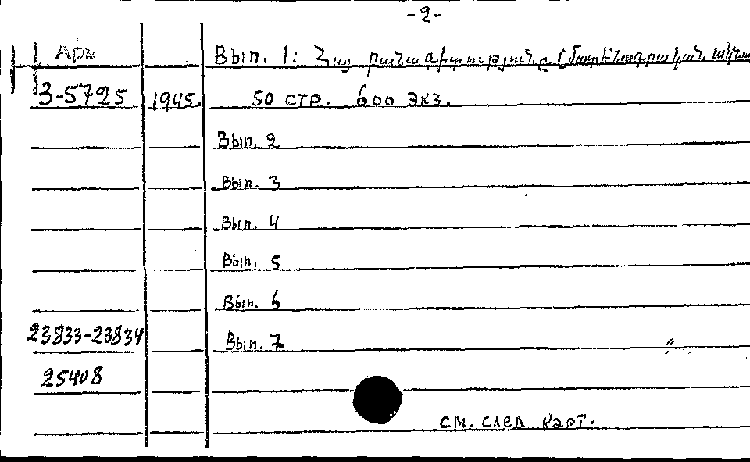 -2-
Арм Вып. 1: Հայ բանասիրությանը
3-5725 1945. 50 стр. 600 экз.
Вып. 2
Вып. 3
Вып. 4
Вып. 5
Вып. 6
23833-23834 Вып. 7
25408
см. след карт.